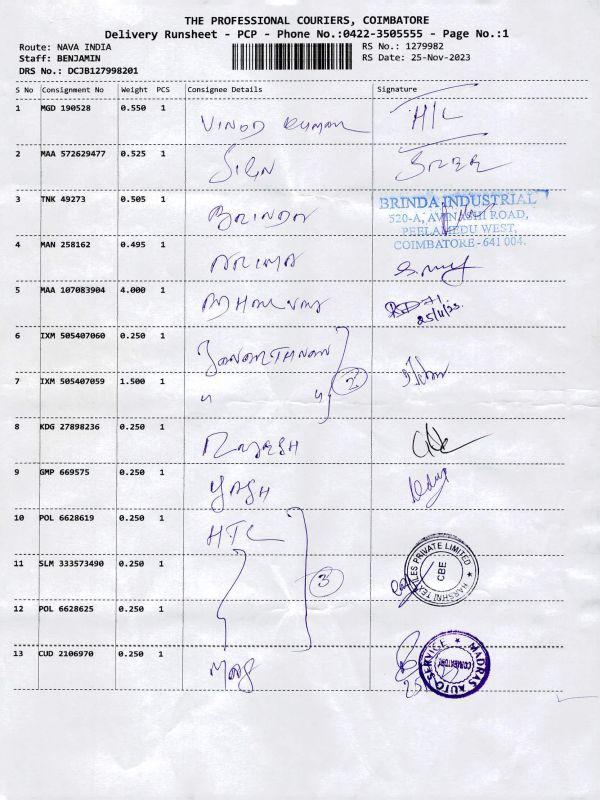 THE PROFESSIONAL COURIERS, COIMBATORE
Delivery Runsheet - PCP - Phone No.:0422-3505555 - Page No.:1
Route: NAVA INDIA
RS No.: 1279982
Staff: BENJAMIN
RS Date: 25-Nov-2023
DRS No.: DCJB127998201
S No Consignment No Weight PCS Consignee Details Signature
1 MGD 190528 0.550 1 VINOD KUMAR H/C
2 MAA 572629477 0.525 1 SIGN
3 TNK 49273 0.505 1 BRINDA
BRINDA INDUSTRIAL
520-A, AVINASHI ROAD,
PEELAMEDU WEST,
COIMBATORE - 641 004.
4 MAN 258162 0.495 1
5 MAA 107083904 4.000 1
25/11/23.
6 IXM 505407060 0.250 1 JANARTHANAN
7 IXM 505407059 1.500 1 " " 2
8 KDG 27898236 0.250 1 RAJESH
9 GMP 669575 0.250 1 YASH
10 POL 6628619 0.250 1 HTL
11 SLM 333573490 0.250 1 3
HARSHNI TEXTILES PRIVATE LIMITED
CBE
12 POL 6628625 0.250 1
13 CUD 2106970 0.250 1
MADRAS AUTO SERVICE
COIMBATORE